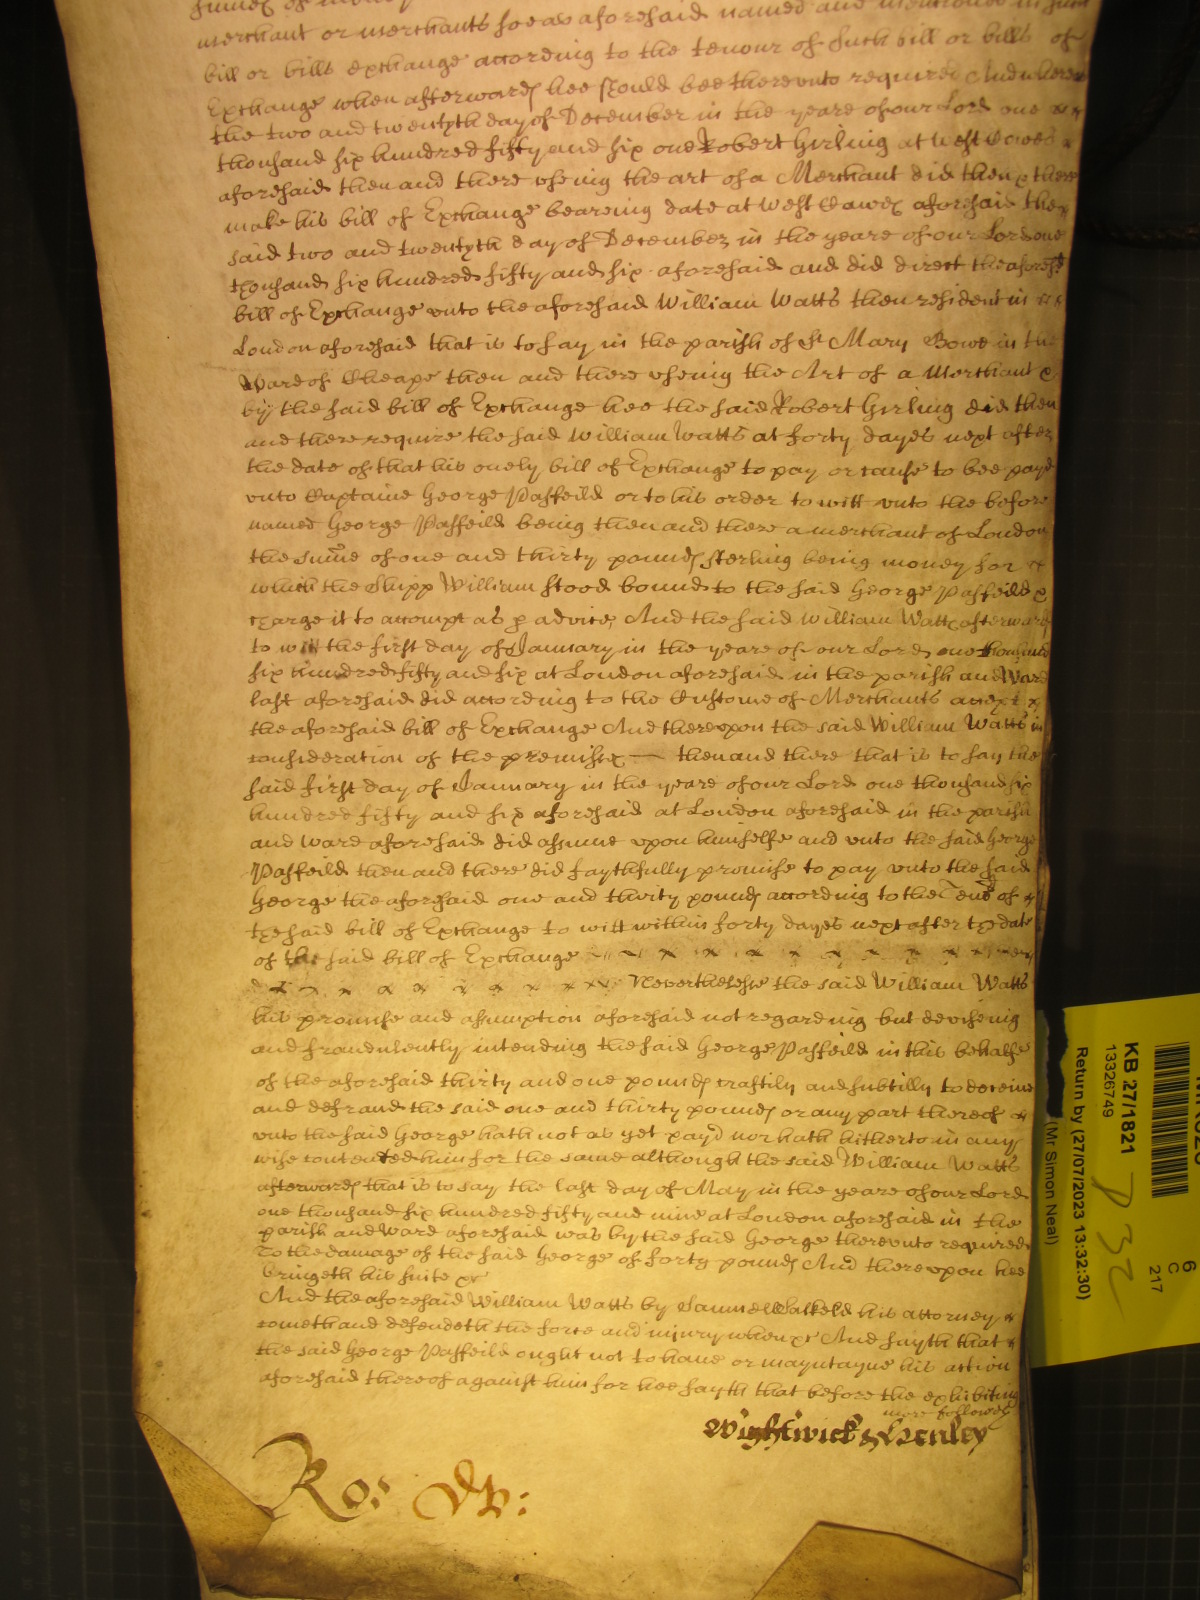 summes of money
merchant or merchants soe as aforesaid named and mentioned in such
bill or bills exchange according to the tenour of such bill or bills of
Exchange when afterwards hee should bee thereunto required And whereas
the two and twentyth day of December in the yeare of our Lord one
thousand six hundred fifty and six one Robert Girling at West Cowes
aforesaid then and there useing the art of a Merchant did then & there
make his bill of Exchange bearing date at West Cowes aforesaid the
said two and twentyth day of December in the yeare of our Lord one
thousand six hundred fifty and six aforesaid and did direct the aforesd
bill of Exchange unto the aforesaid William Watts then resident in
London aforesaid that is to say in the parish of St Mary Bowe in the
Ward of Cheape then and there useing the Art of a Merchant &
by the said bill of Exchange hee the said Robert Girling did then
and there require the said William Watts at forty dayes next after
the date of that his onely bill of Exchange to pay or cause to bee payd
unto Captaine George Passeild or to his order to witt unto the before
named George Passeild being then and there a merchant of London
the sume of one and thirty pounds sterling being money for
which the Shipp William stood bound to the said George Passeild &
charge it to accompt as p advice And the said William Watts afterwards
to witt the first day of January in the yeare of our Lord one thousand
six hundred fifty and six at London aforesaid in the parish and Ward
last aforesaid did according to the Custome of Merchants accept
the aforesaid bill of Exchange And thereupon the said William Watts in
consideration of the premisses then and there that is to say the
said first day of January in the yeare of our Lord one thousand six
hundred fifty and six aforesaid at London aforesaid in the parish
and Ward aforesaid did assume upon himselfe and unto the said George
Passeild then and there did faythfully promise to pay unto the said
George the aforesaid one and thirty pounds according to the of
the said bill of Exchange to witt within forty dayes next after the date
of the said bill of Exchange
Neverthelesse the said William Watts
his promise and assumption aforesaid not regarding but deviseing
and fraudulently intending the said George Passeild in this behalfe
of the aforesaid thirty and one pounds craftily and subtilly to deceive
and defraud the said one and thirty pounds or any part thereof
unto the said George hath not as yet payd nor hath hitherto in any
wise contented him for the same although the said William Watts
afterwards that is to say the last day of May in the yeare of our Lord
one thousand six hundred fifty and nine at London aforesaid in the
parish and Ward aforesaid was by the said George thereunto required
To the damage of the said George of forty pounds And thereupon hee
bringeth his suite &c
And the aforesaid William Watts by Samuel Walkeld his attorney
cometh and defendeth the force and injury when &c And sayth that
the said George Passeild ought not to have or mayntayne his action
aforesaid thereof against him for hee sayth that before the exhibiting
more followeth
Wightwick & Henley
Ro: W:
KB 27/1821
13326749
Return by (27/07/2023 13:32:30)
(Mr Simon Neal)
6
C
217
D 32